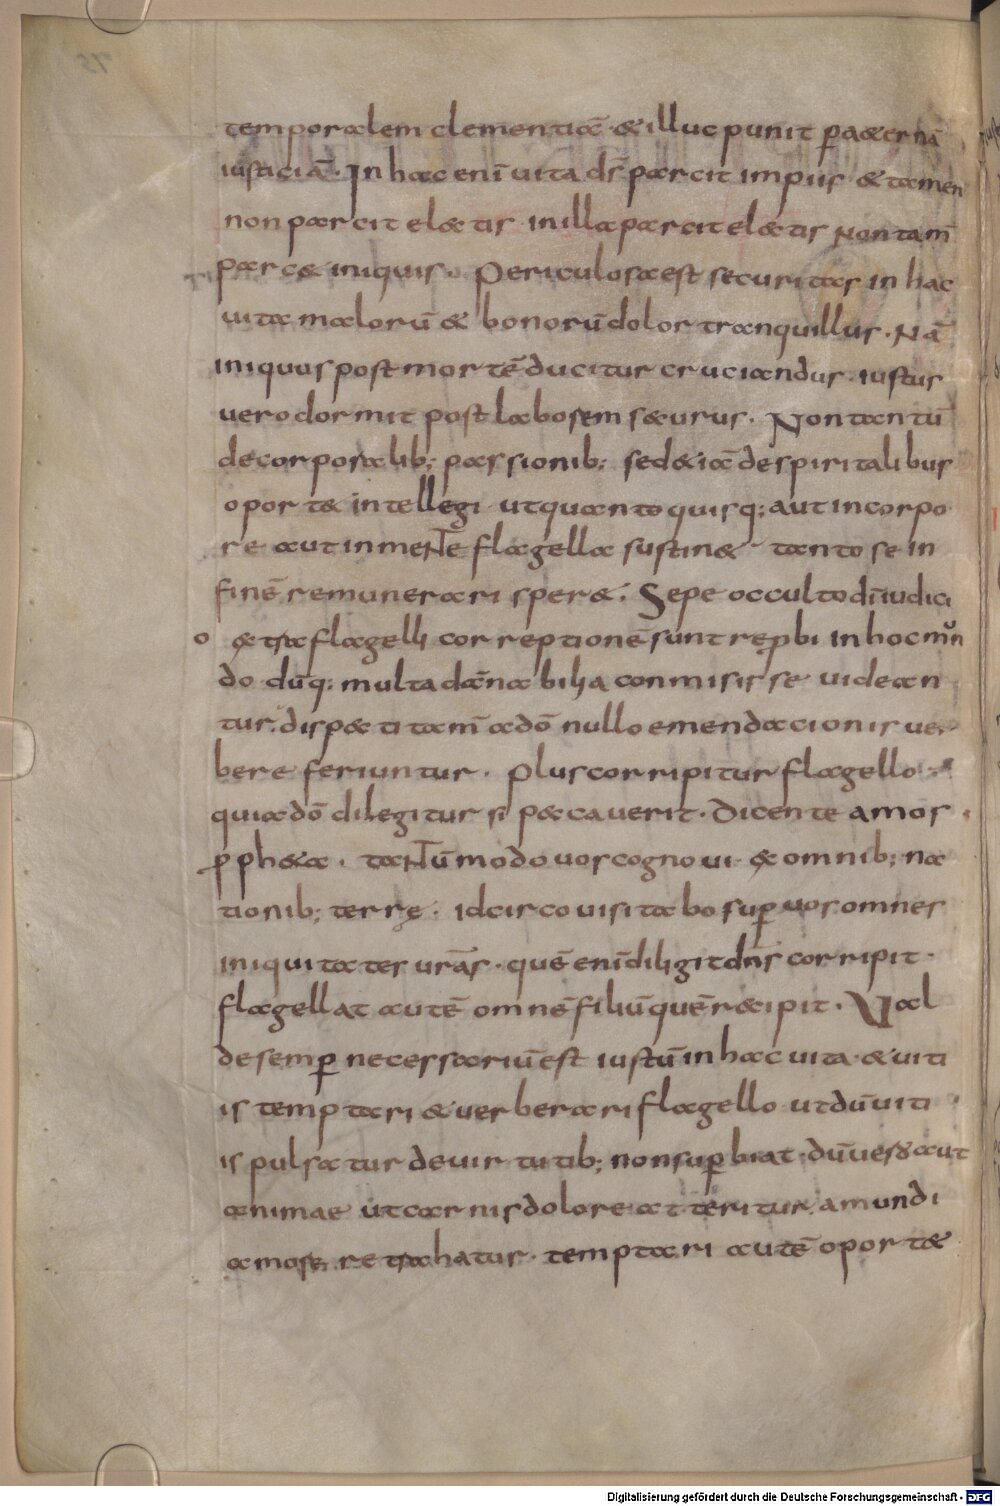 temporalem clementiā · & illuc punit p̄ aeternā
iusticiā · In hac enī uita d̄s parcit impiis & tamen
non parcit electis in illa parcit electis Non tam̄
parc& iniquis · Periculosa est securitas in hac
uita malorū & bonorū dolor tranquillus · Nā
iniquus post mortē ducitur cruciandus · iustus
uero dormit post labosem securus · Non tantū
decorporalib; passionib; sed & iā despiritalibus
oport& intellegi ut quanto quisq; aut incorpo
re aut in mente flagella sustin& · tanto se in
finē remunerari sper& · Sepe occulto dī iudici
o extra flagelli correptionē sunt rep̱bi in hoc mun
do dūq; multa dānabilia conmisisse uidean
tur · dispecti tam̄ a dō nullo emendacionis uer
bere feriuntur · Plus corripitur flagello ·
qui a dō dilegitur si peccauerit · Dicente amos
p̱ph&a · tantūmodo uos cognoui · ex omnib; na
tionib; terrę · idcirco uisitabo sup̱ uos omnes
iniquitates urās · quē enī diligit dn̄s corripit ·
flagellat autē omnē filiū quē recipit · Val
de semp̱ necessariū est iustū in hac uita · & uiti
is temptari & uerberari flagello ut dū uiti
is pulsatur deuirtutib; non sup̱biat · dū uero aut
animae ut carnis dolore atteritur a mundi
amose retrahatur · temptari autē oport&
Digitalisierung gefördert durch die Deutsche Forschungsgemeinschaft - DFG